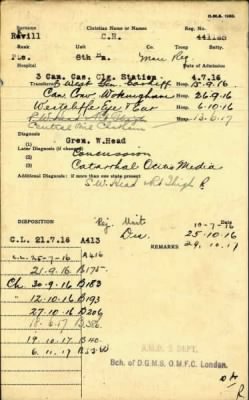 D.M.S. 1300.
Surname Christian Name or Names Reg. No.
Revill C.H. 441128
Rank Unit Co. Troop Batty.
Pte. 8th Bn.
Hospital Date of Admission
3 Can. Cas. Clg. Station 4.7.16
Transferred 3 West Gen. Cardiff Hosp. 15-9-16
Can. Conv Wokingham Hosp. 26-9-16
Westcliffe Eye & Ear Hosp. 6-10-16
Hosp. 13-6-17
Diagnosis
Gren. W. Head
Later Diagnosis (if changed)
Concussion
Catarrhal Otitis Media
Additional Diagnosis: if more than one state present
S.W. Head Thigh R
DISPOSITION Date
10-7-16
Dis. 25-10-16
C.L. 21.7.16 A413 REMARKS 29.10.17
C.L. 25-7-16 A416
21-9-16 B175
Ch 30-9-16 B183
" 12-10-16 B193
27-10-16 B206
18-6-17
19.10.17
6.11.17
A.M.D. 2 DEPT.
Bch. of D.G.M.S. O.M.F.C. London.